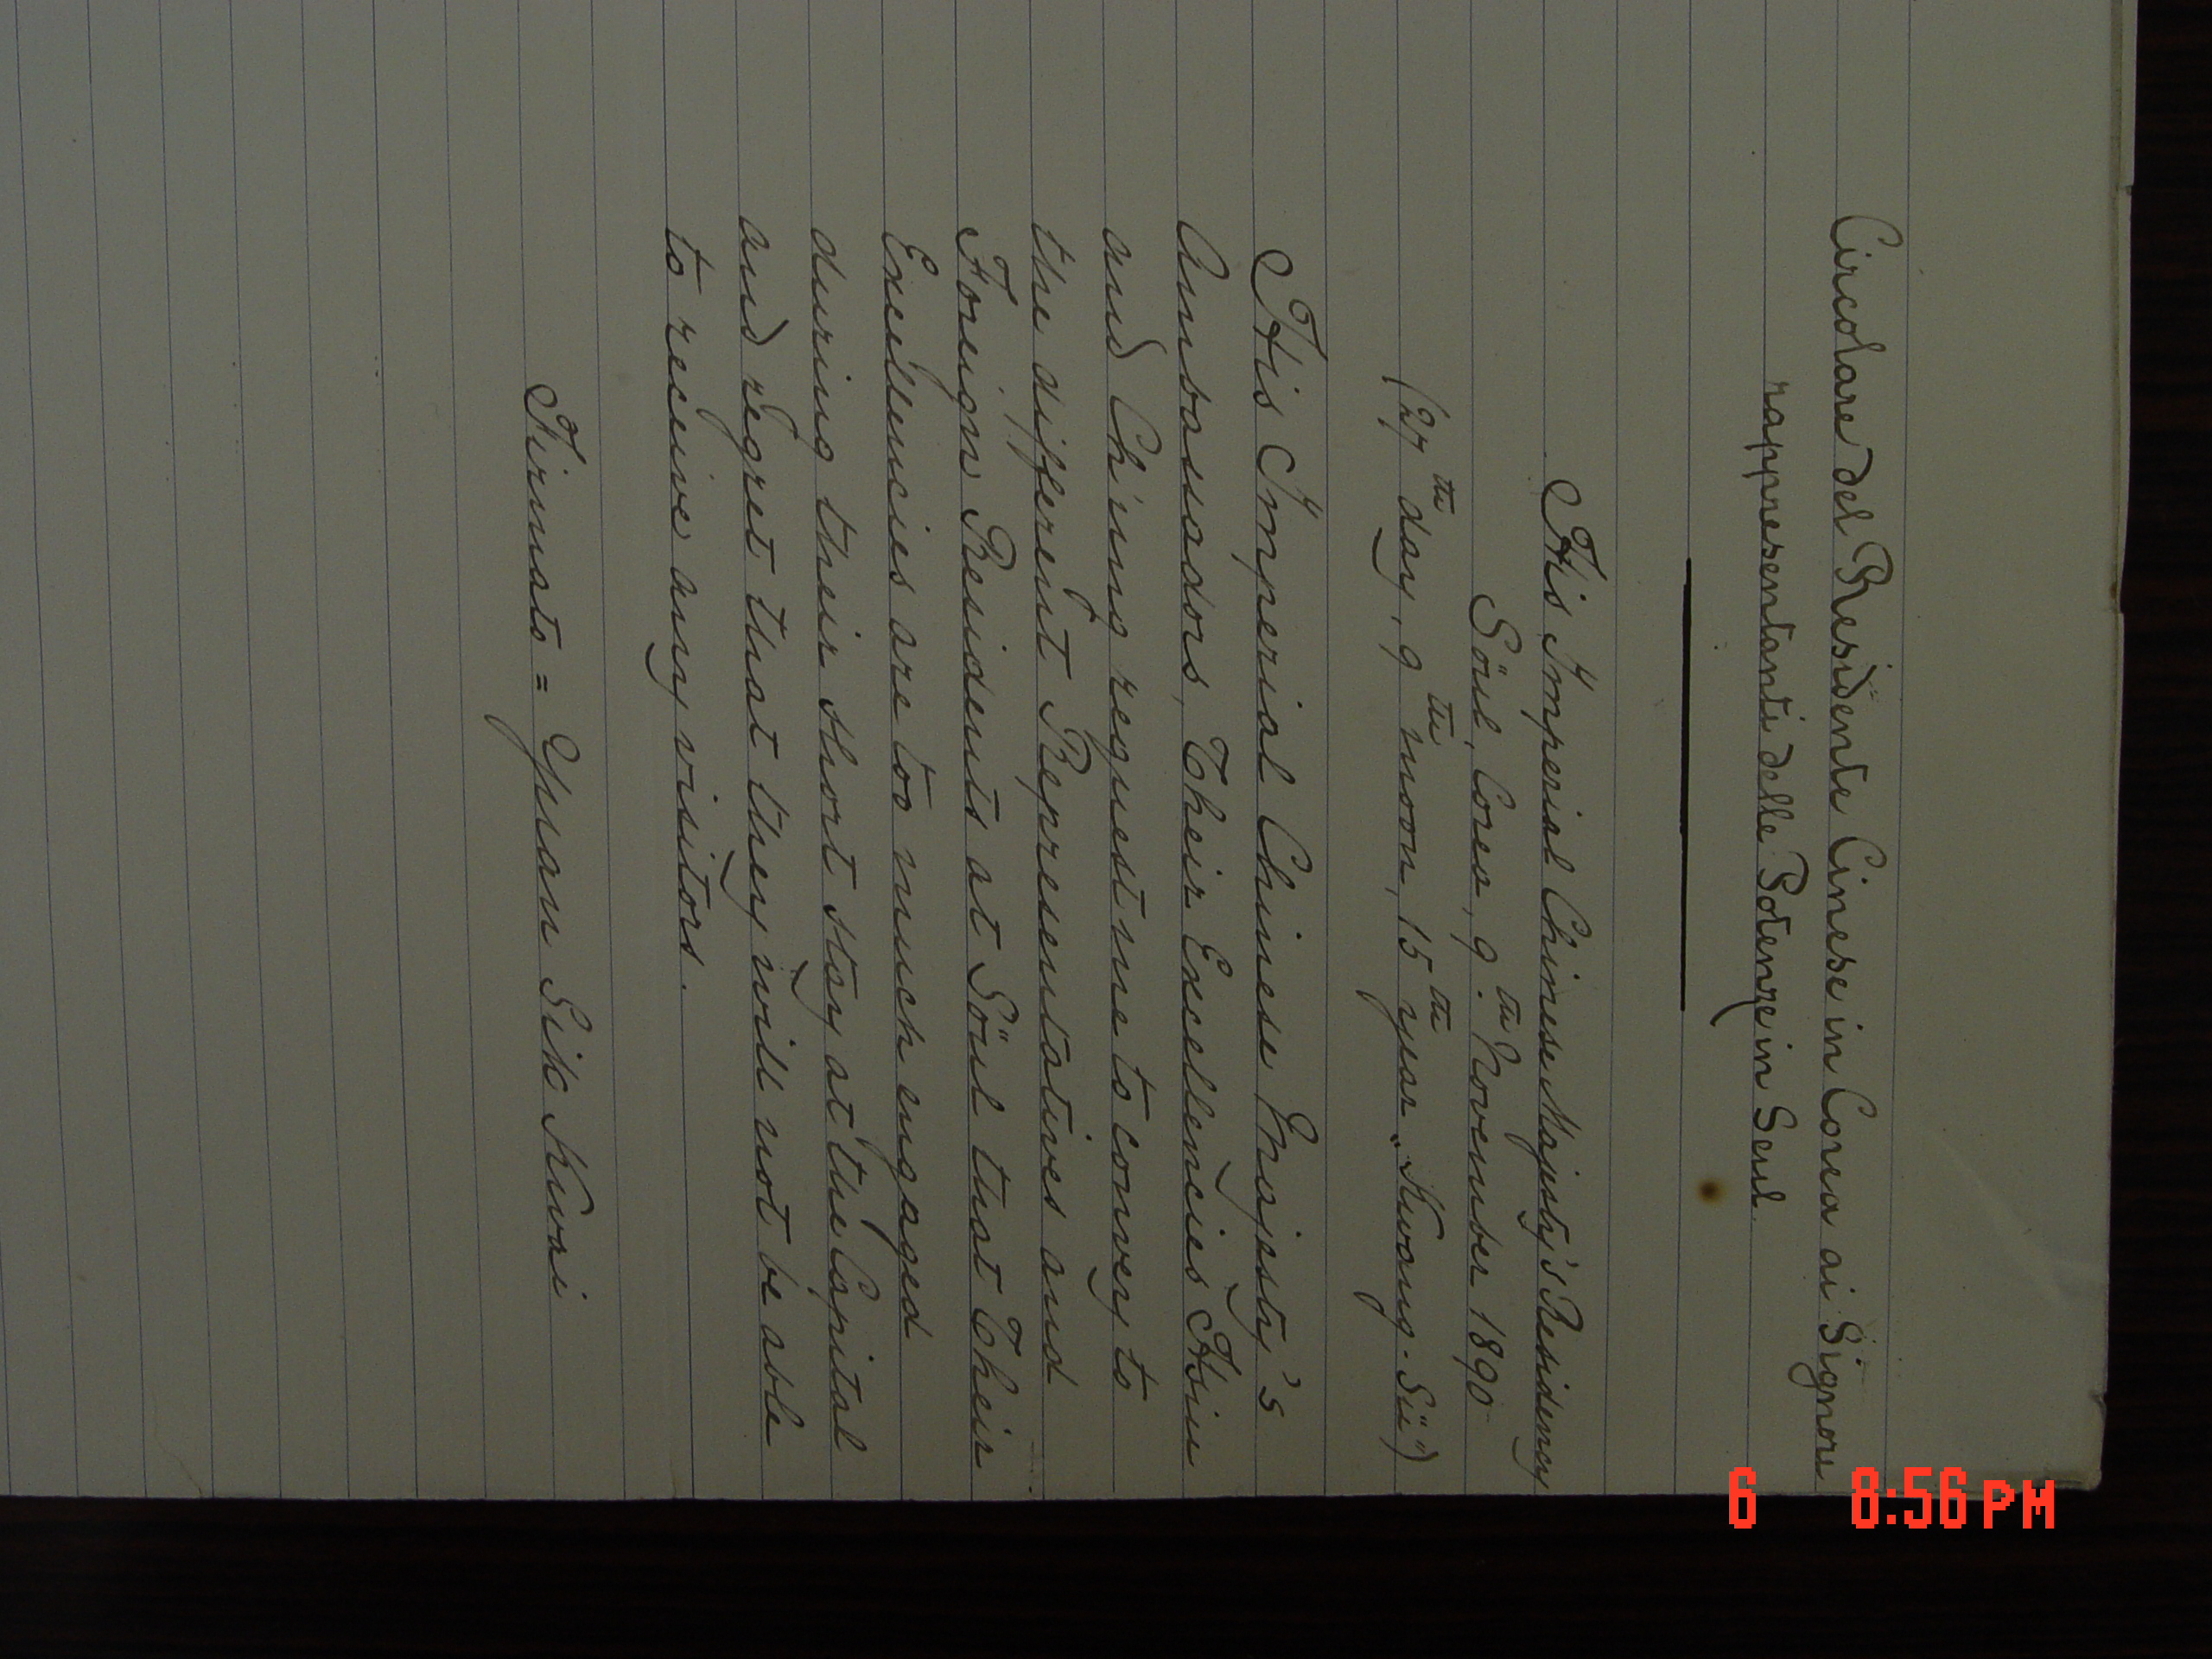 Circolare del Residente Cinese in Corea ai Signori
rappresentanti delle Potenze in Seul.
His Imperial Chinese Majesty's Residency
Söul, Corea, 9.th November 1890
(27th day, 9th moon, 15th year „Kwang-Sü")
His Imperial Chinese Majesty's
Ambassadors, Their Excellencies Hsü
and Ch'ung request me to convey to
the different Representatives and
Foreign Residents at Söul that Their
Excellencies are too much engaged
during their short stay at the Capital
and regret that they will not be able
to receive any visitors.
Firmato = Yuan Sik Kwai
6 8:56 PM